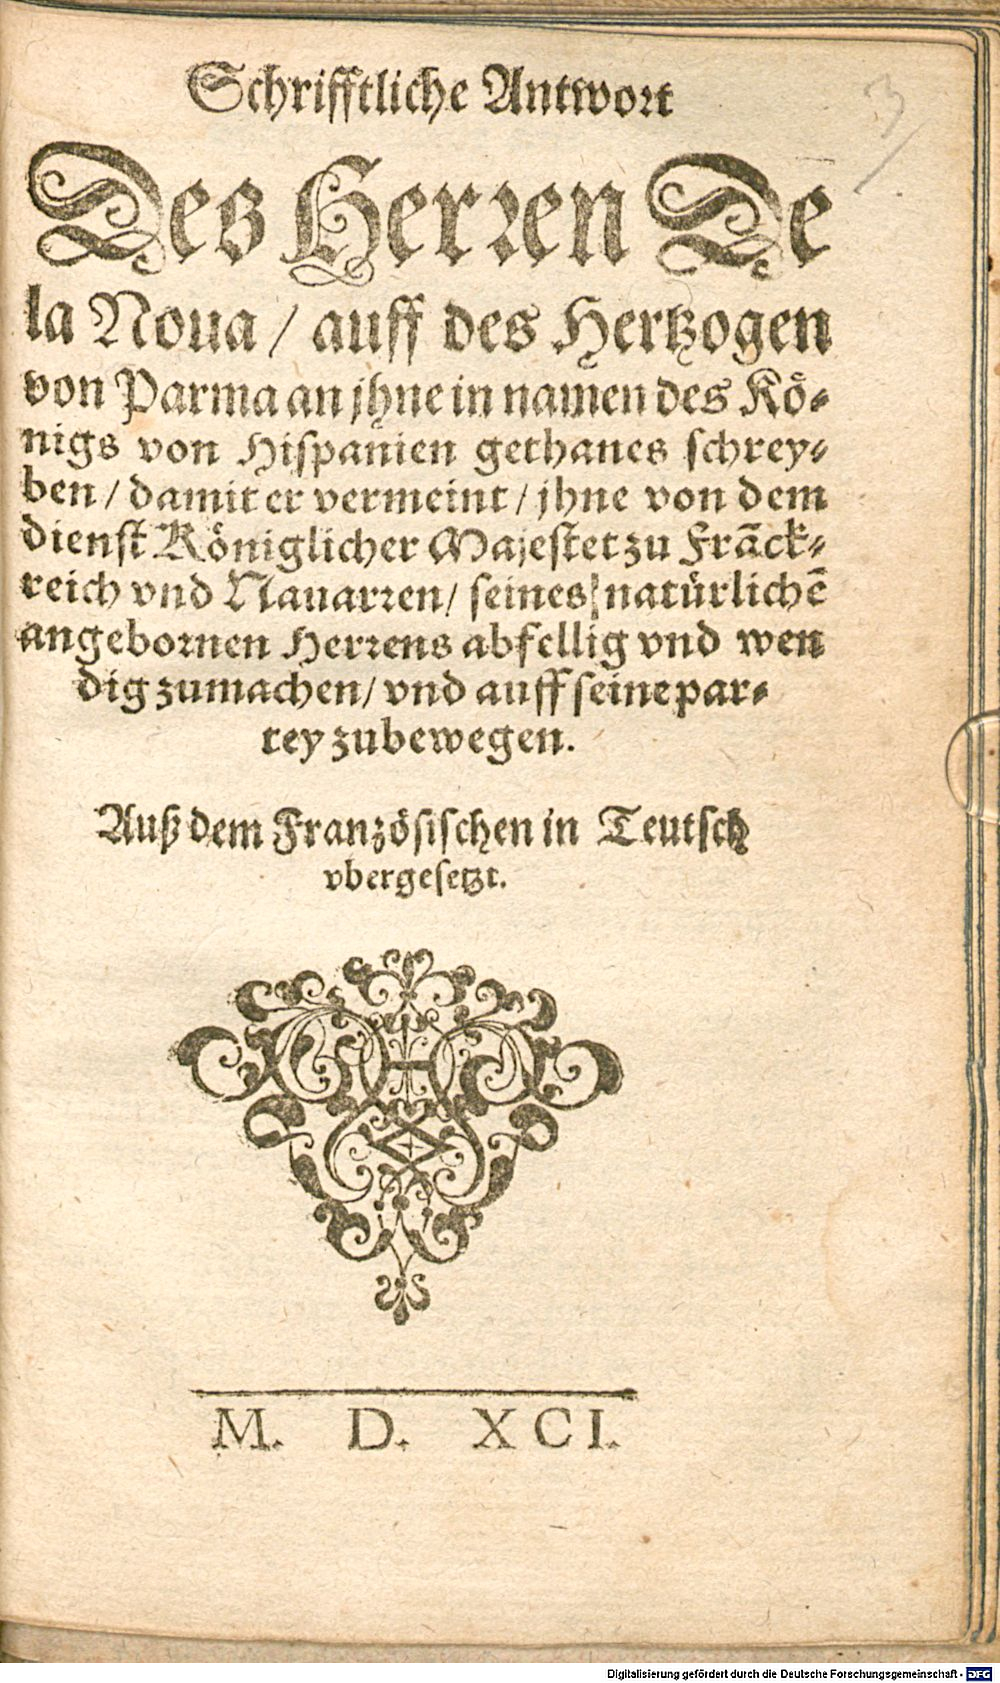 Schrifftliche Antwort
Des Herren De
la Noua / auff des Hertzogen
von Parma an jhne in namen des Kö-
nigs von Hispanien gethanes schrey-
ben / damit er vermeint / jhne von dem
dienst Königlicher Majestet zu Frāck-
reich vnd Nauarren / seines natürlichē
angebornen Herrens abfellig vnd wen
dig zumachen / vnd auff seine par-
tey zubewegen.
Auß dem Französischen in Teutsch
vbergesetzt.
M. D. XCI.
3
Digitalisierung gefördert durch die Deutsche Forschungsgemeinschaft - DFG